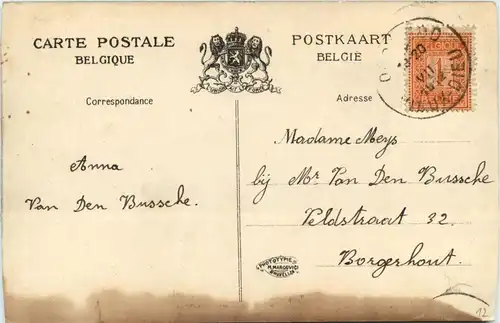 CARTE POSTALE
BELGIQUE
POSTKAART
BELGIË
Correspondance
Adresse
Anna
Van Den Bussche.
Madame Meys
bij Mr Van Den Bussche
Veldstraat 32.
Borgerhout.
PHOTOTYPIE
M. MARCOVICI
BRUXELLES
12